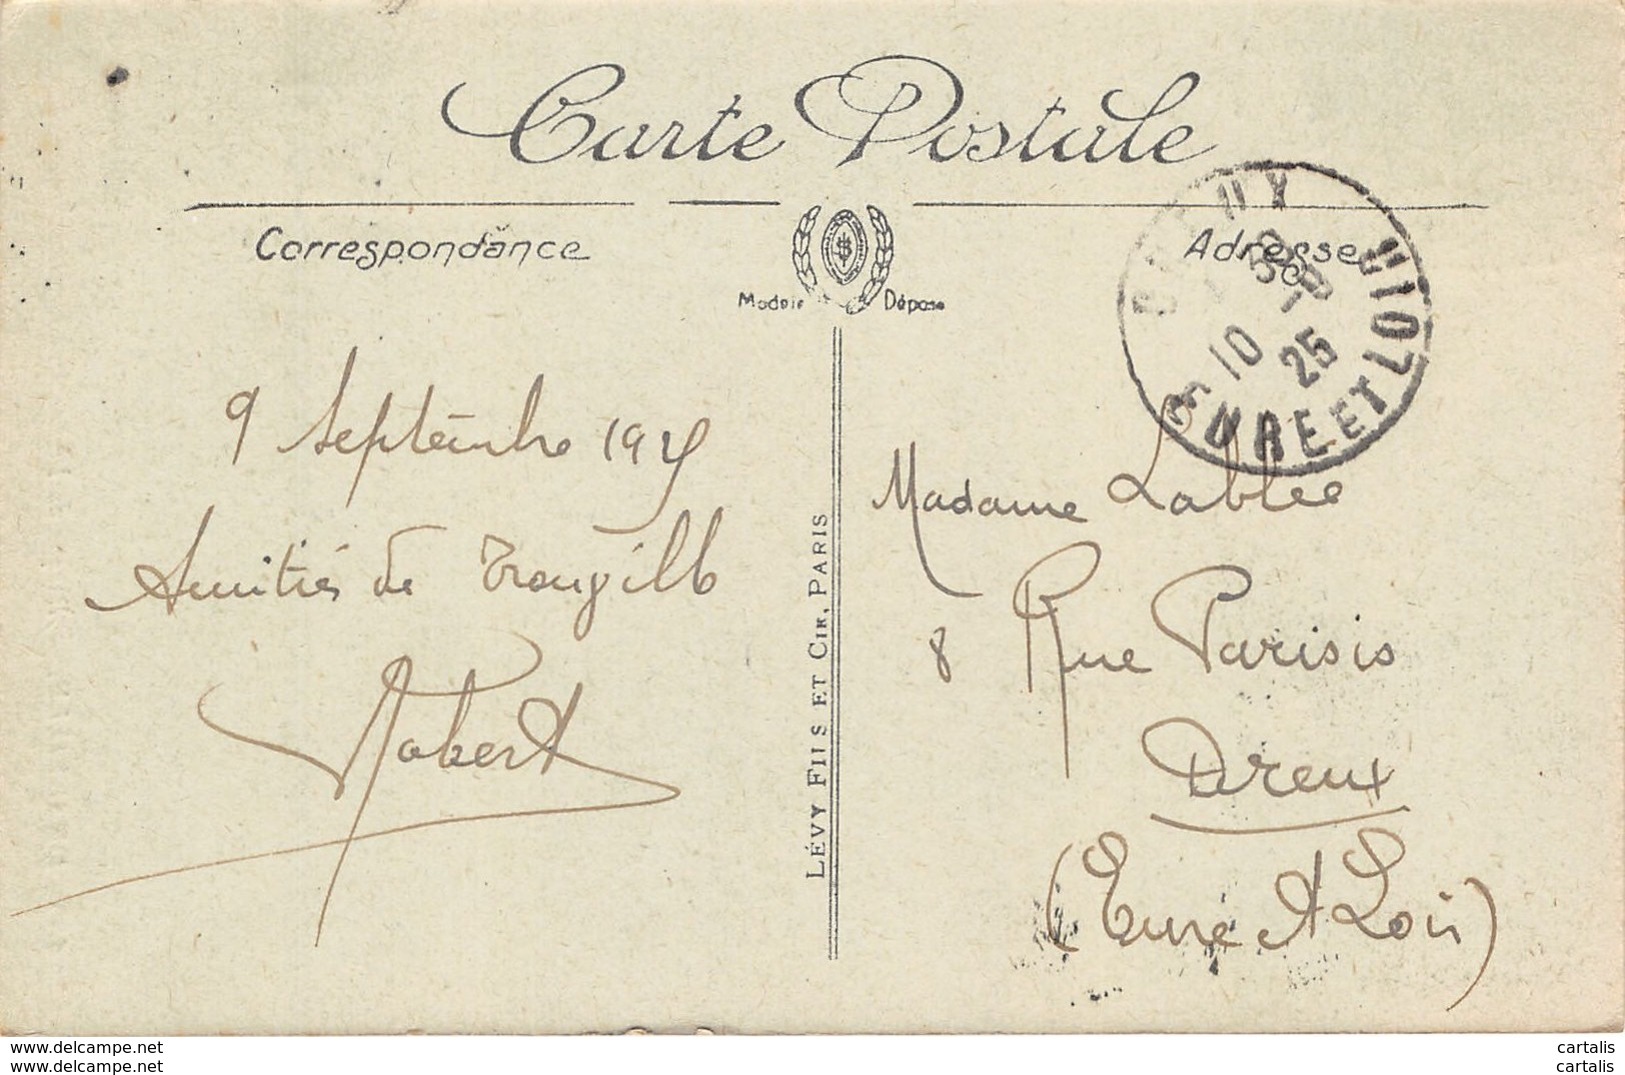 Carte Postale
Correspondance
Adresse
Modèle Déposé
DREUX
10 - 9
25
EURE ET LOIR
9 Septembre 1925
Amitiés de Trouville
Robert
LÉVY FILS ET CIE, PARIS
Madame Lablée
8 Rue Parisis
Dreux
(Eure et Loir)
www.delcampe.net
cartalis
www.delcampe.net
cartalis